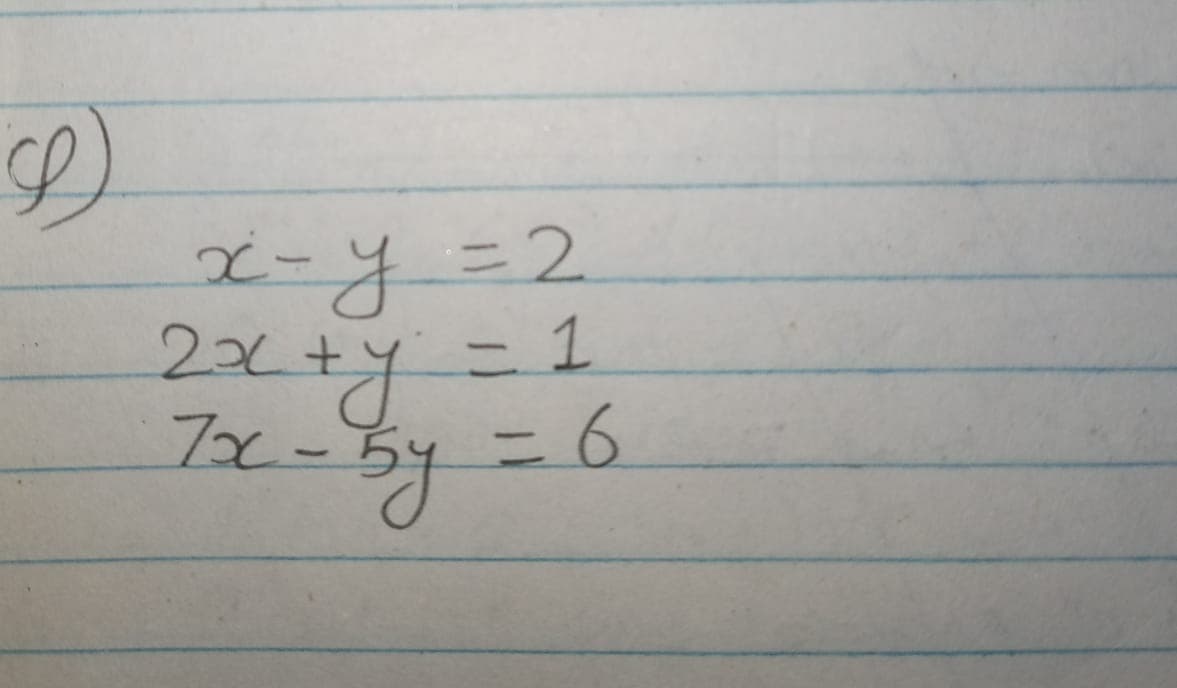 φ)
x - y = 2
2x + y = 1
7x - 5y = 6